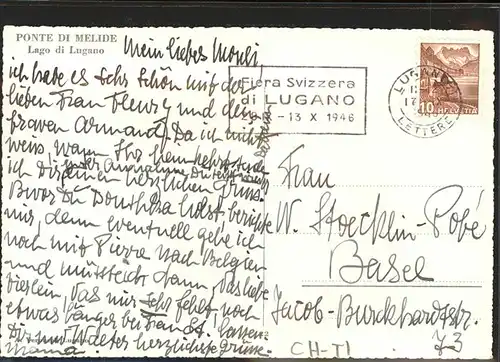 PONTE DI MELIDE
Lago di Lugano
Mein liebes Mouli
ich habe es sehr schön mit der
lieben Frau Fleury und dem
braven Armand. Da ich nicht
weiss, wann Ihr heimkehrt, sende
ich Dir einen herzlichen Gruss.
Bevor Du Doutschka holst berichte
mir, denn eventuell gehe ich
noch mit Pierre nach Belgien
und müsstest dann, das liebe
Tierlein, das mir sehr fehlt, noch
etwas länger bei lassen.
Dir und Walter herzlichste Grüsse
Mama
Fiera Svizzera
di LUGANO
-13 X 1946
LUGANO
LETTERE
10 HELVETIA
Frau
W. Stoecklin-Popé
Basel
Jacob-Burckhardtstr.
73
CH-TI